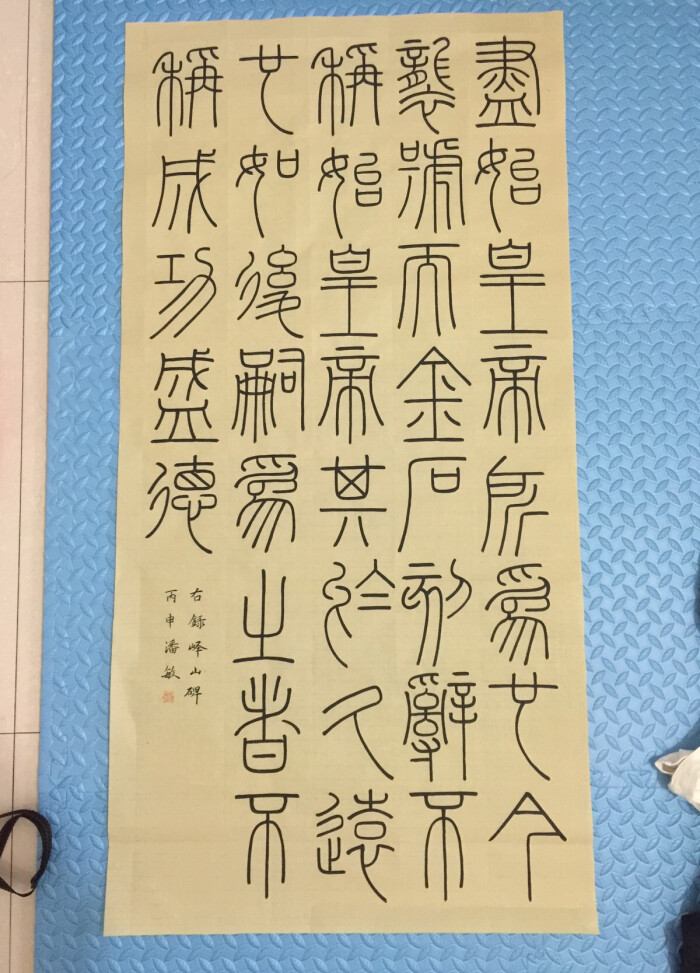 盡始皇帝所爲也今
襲號而金石刻辭不
稱始皇帝其於久遠
也如後嗣爲之者不
稱成功盛德
右録峄山碑
丙申潘敏